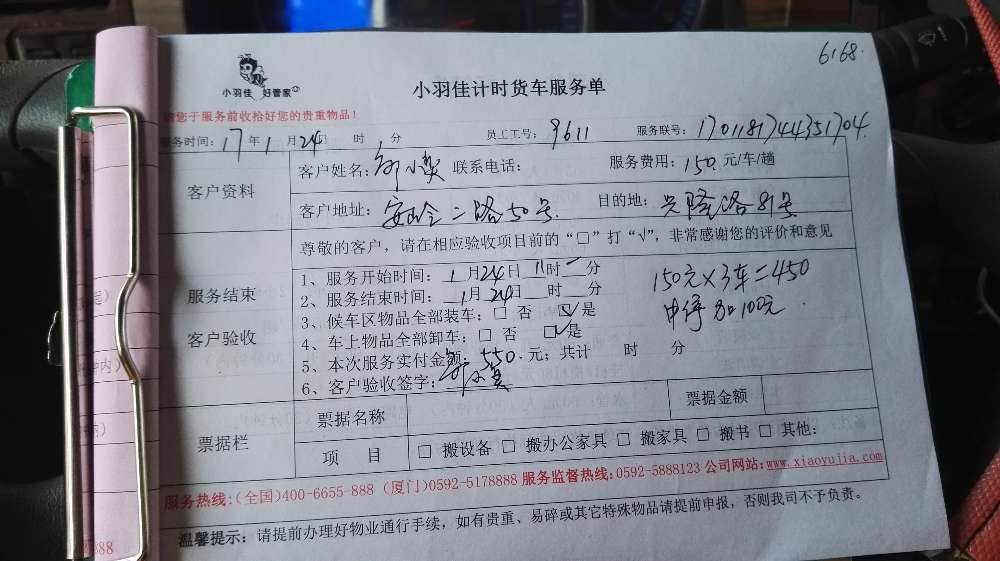 6168.
小羽佳 好管家
小羽佳计时货车服务单
您于服务前收拾好您的贵重物品！
服务时间：17年1月24日 时 分 员工工号：9611 服务联号：1701181744351704.
客户资料
客户姓名： 小 联系电话： 服务费用：150.元/车/趟
客户地址：安岭二路50号. 目的地：兴隆路81号
尊敬的客户，请在相应验收项目前的“□”打“√”，非常感谢您的评价和意见
服务结束
客户验收
1、服务开始时间：1月24日11时 分
2、服务结束时间：1月24日 时 分
3、候车区物品全部装车：□ 否 ☑是
4、车上物品全部卸车：□ 否 ☑是
5、本次服务实付金额：550.元；共计 时 分
6、客户验收签字：
150元×3车=450
中停加100元.
票据栏
票据名称 票据金额
项 目 □ 搬设备 □ 搬办公家具 □ 搬家具 □ 搬书 □ 其他：
服务热线：(全国)400-6655-888 (厦门)0592-5178888 服务监督热线：0592-5888123 公司网站：www.xiaoyujia.com
温馨提示：请提前办理好物业通行手续，如有贵重、易碎或其它特殊物品请提前申报，否则我司不予负责。